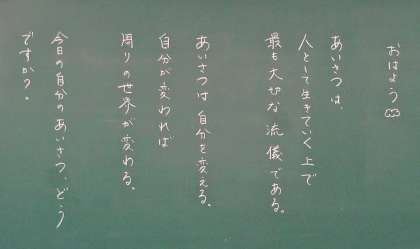 おはよう
あいさつは、
人として生きていく上で
最も大切な流儀である。
あいさつは自分を変える。
自分が変われば
周りの世界が変わる。
今日の自分のあいさつ、どう
ですか？。